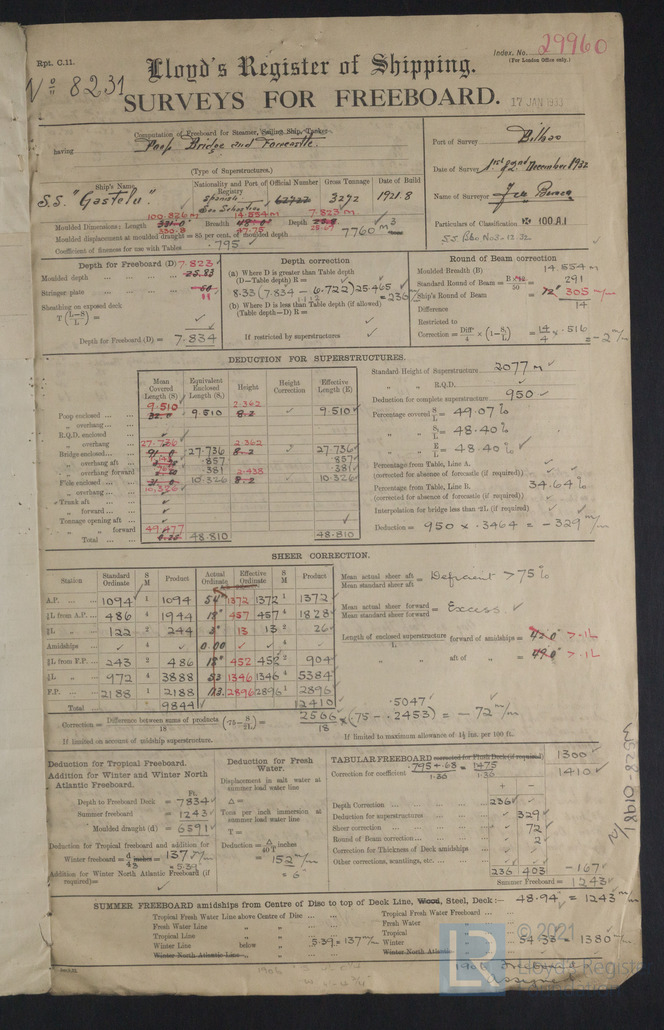 Rpt. C.11.
Index. No. 29960
(For London Office only.)
No 8231
Lloyd's Register of Shipping.
SURVEYS FOR FREEBOARD.
17 JAN 1933
Computation of Freeboard for Steamer, Sailing Ship, Tanker
having Poop Bridge and Forecastle.
(Type of Superstructures.)
Port of Survey Bilbao
Date of Survey 1st & 2nd December 1932
Name of Surveyor
Particulars of Classification 100.A.1
Ship's Name
Nationality and Port of Registry
Official Number
Gross Tonnage
Date of Build
S.S. "Gastelu".
Spanish
San Sebastian
3272
1921.8
Moulded Dimensions: Length 100.826 m Breadth 14.554 m Depth 7.823 m
Moulded displacement at moulded draught = 85 per cent. of moulded depth 7760 m3
Coefficient of fineness for use with Tables .795
Depth for Freeboard (D)
Moulded depth 7.823 25.83
Stringer plate 11
Sheathing on exposed deck
T (L-S/L) =
Depth for Freeboard (D) = 7.834
Depth correction
(a) Where D is greater than Table depth
(D—Table depth) R =
8.33 (7.834 - 6.722) 25.465 = 236
1.112
(b) Where D is less than Table depth (if allowed)
(Table depth—D) R =
If restricted by superstructures
Round of Beam correction
Moulded Breadth (B) 14.554 m
Standard Round of Beam = B×12/50 = 291
Ship's Round of Beam = 12" 305 m/m
Difference 14
Restricted to
Correction = Diff/4 × (1-S/L) = 14/4 × .516 = -2 m/m
DEDUCTION FOR SUPERSTRUCTURES.
Mean Covered Length (S)
Equivalent Enclosed Length (S₁)
Height
Height Correction
Effective Length (E)
Poop enclosed ... 9.510 9.510 2.362 8.2 9.510
„ overhang ...
R.Q.D. enclosed
„ overhang
Bridge enclosed... 27.736 27.736 2.362 8.2 27.736
„ overhang aft ... .857 .857
„ overhang forward .381 2.438 .381
F'cle enclosed ... 10.326 10.326 8.2 10.326
„ overhang ...
Trunk aft ...
„ forward ...
Tonnage opening aft ...
„ „ forward
Total ... 49.477 48.810 48.810
Standard Height of Superstructure 2.077 m
„ „ R.Q.D.
Deduction for complete superstructure 950
Percentage covered S/L = 49.07%
„ „ S₁/L = 48.40%
„ „ E/L = 48.40%
Percentage from Table, Line A.
(corrected for absence of forecastle (if required))
Percentage from Table, Line B. 34.64%
(corrected for absence of forecastle (if required))
Interpolation for bridge less than ·2L (if required)
Deduction = 950 x .3464 = -329 m/m
SHEER CORRECTION.
Station
Standard Ordinate
S M
Product
Actual Ordinate
Effective Ordinate
S M
Product
A.P. ... 1094 1 1094 54" 1372 1372 1 1372
⅙L from A.P. ... 486 4 1944 18" 457 457 4 1828
⅓L „ 122 2 244 3" 13 13 2 26
Amidships 4 0.00 4
⅓L from F.P. ... 243 2 486 18" 452 452 2 904
⅙L „ 972 4 3888 53 1346 1346 4 5384
F.P. ... 2188 1 2188 113 2896 2896 1 2896
Total ... 9844 12410
Mean actual sheer aft / Mean standard sheer aft = Deficient > 75%
Mean actual sheer forward / Mean standard sheer forward = Excess
Length of enclosed superstructure forward of amidships = >.1L
L
„ „ aft of „ = >.1L
Correction = Difference between sums of products/18 (·75 - S/2L) = 2566/18 × (.75 - .2453) = -72 m/m
.5047
If limited on account of midship superstructure.
If limited to maximum allowance of 1½ ins. per 100 ft.
Deduction for Tropical Freeboard.
Addition for Winter and Winter North
Atlantic Freeboard.
Ft.
Depth to Freeboard Deck = 7834
Summer freeboard = 1243
Moulded draught (d) = 6591
Deduction for Tropical freeboard and addition for
Winter freeboard = d/48 inches = 137 m/m
= 5.39
Addition for Winter North Atlantic Freeboard (if
required) =
Deduction for Fresh Water.
Displacement in salt water at
summer load water line
Δ =
Tons per inch immersion at
summer load water line
T =
Deduction = Δ/40 T
= 152 m/m
= 6"
TABULAR FREEBOARD corrected for Flush Deck (if required) 1300
Correction for coefficient .795+.68/1.36 = 1475/1.36 1410
+ -
Depth Correction ... 236
Deduction for superstructures ... 329
Sheer correction ... 72
Round of Beam correction ... 2
Correction for Thickness of Deck amidships
Other corrections, scantlings, etc. ...
236 403 -167
Summer Freeboard = 1243
SUMMER FREEBOARD amidships from Centre of Disc to top of Deck Line, Wood, Steel, Deck:— 48.94 = 1243 m/m
Tropical Fresh Water Line above Centre of Disc ...
Fresh Water Line „ „
Tropical Line „ „
Winter Line below „ 5.39 = 137 m/m
Winter North Atlantic Line „
Tropical Fresh Water Freeboard ...
Fresh Water „
Tropical „
Winter „ 54.33 = 1380 m/m
Winter North Atlantic „
1906 Freeboard
assigned
W528 0198 1/2
© 2021
LR
Lloyd's Register